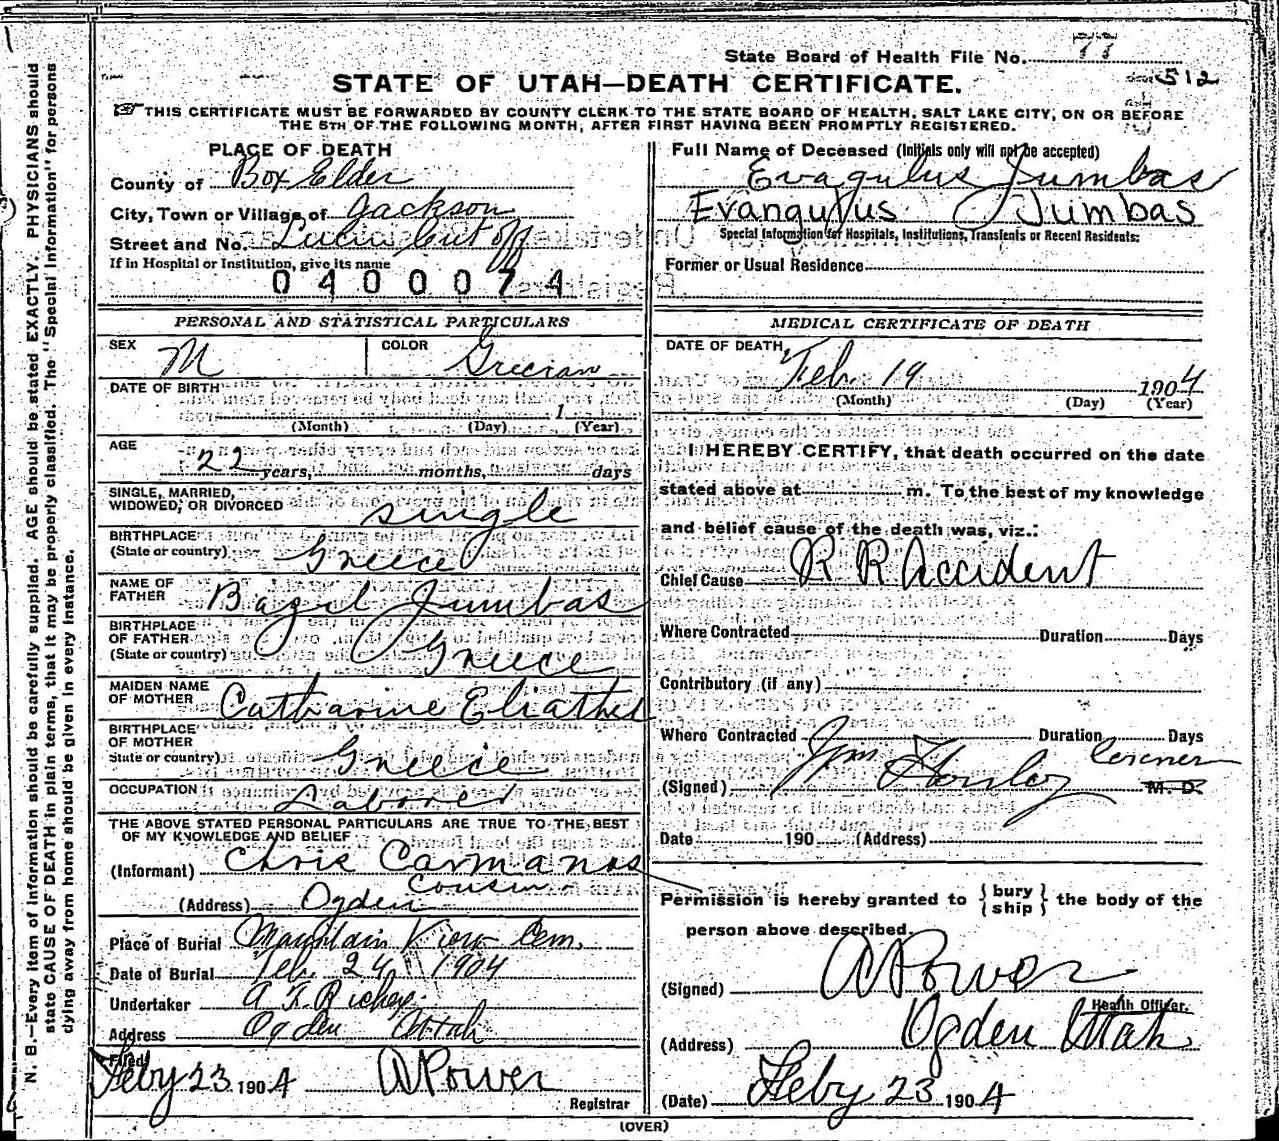 State Board of Health File No. 77
512
STATE OF UTAH—DEATH CERTIFICATE.
☞ THIS CERTIFICATE MUST BE FORWARDED BY COUNTY CLERK TO THE STATE BOARD OF HEALTH, SALT LAKE CITY, ON OR BEFORE
THE 5TH OF THE FOLLOWING MONTH, AFTER FIRST HAVING BEEN PROMPTLY REGISTERED.
PLACE OF DEATH
County of Box Elder
City, Town or Village of Jackson
Street and No. Lucin Cut off
If in Hospital or Institution, give its name
0400074
PERSONAL AND STATISTICAL PARTICULARS
SEX M COLOR Grecian
DATE OF BIRTH
1
(Month) (Day) (Year)
AGE
22 years, months, days
SINGLE, MARRIED,
WIDOWED, OR DIVORCED single
BIRTHPLACE
(State or country) Greece
NAME OF
FATHER Bazil Jumbas
BIRTHPLACE
OF FATHER
(State or country) Greece
MAIDEN NAME
OF MOTHER Catharine
BIRTHPLACE
OF MOTHER
State or country) Greece
OCCUPATION Laborer
THE ABOVE STATED PERSONAL PARTICULARS ARE TRUE TO THE BEST
OF MY KNOWLEDGE AND BELIEF
(Informant) Chris Carmanos
Cousin
(Address) Ogden
Place of Burial Mountain View Cem.
Date of Burial Feb. 24 1904
Undertaker Richey
Address Ogden Utah
Filed
Feby 23 1904 A Power
Registrar
Full Name of Deceased (Initials only will not be accepted)
Evagulus Jumbas
Evangulus Jumbas
Special Information for Hospitals, Institutions, Transients or Recent Residents:
Former or Usual Residence
MEDICAL CERTIFICATE OF DEATH
DATE OF DEATH
Feb. 19 1904
(Month) (Day) (Year)
I HEREBY CERTIFY, that death occurred on the date
stated above at m. To the best of my knowledge
and belief cause of the death was, viz.:
Chief Cause R R Accident
Where Contracted Duration Days
Contributory (if any)
Where Contracted Duration Days
Coroner
(Signed) M. D.
Date 190 (Address)
Permission is hereby granted to {bury ship} the body of the
person above described.
(Signed) A Power
Health Officer.
(Address) Ogden Utah
(Date) Feby 23 1904
(OVER)
N. B.—Every item of information should be carefully supplied. AGE should be stated EXACTLY. PHYSICIANS should
state CAUSE OF DEATH in plain terms, that it may be properly classified. The "Special Information" for persons
dying away from home should be given in every instance.